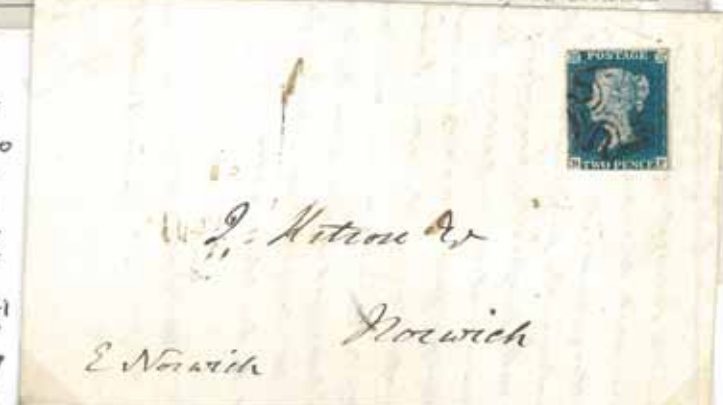 POSTAGE
TWO PENCE
J. Kitson Esqr
Norwich
E Norwich